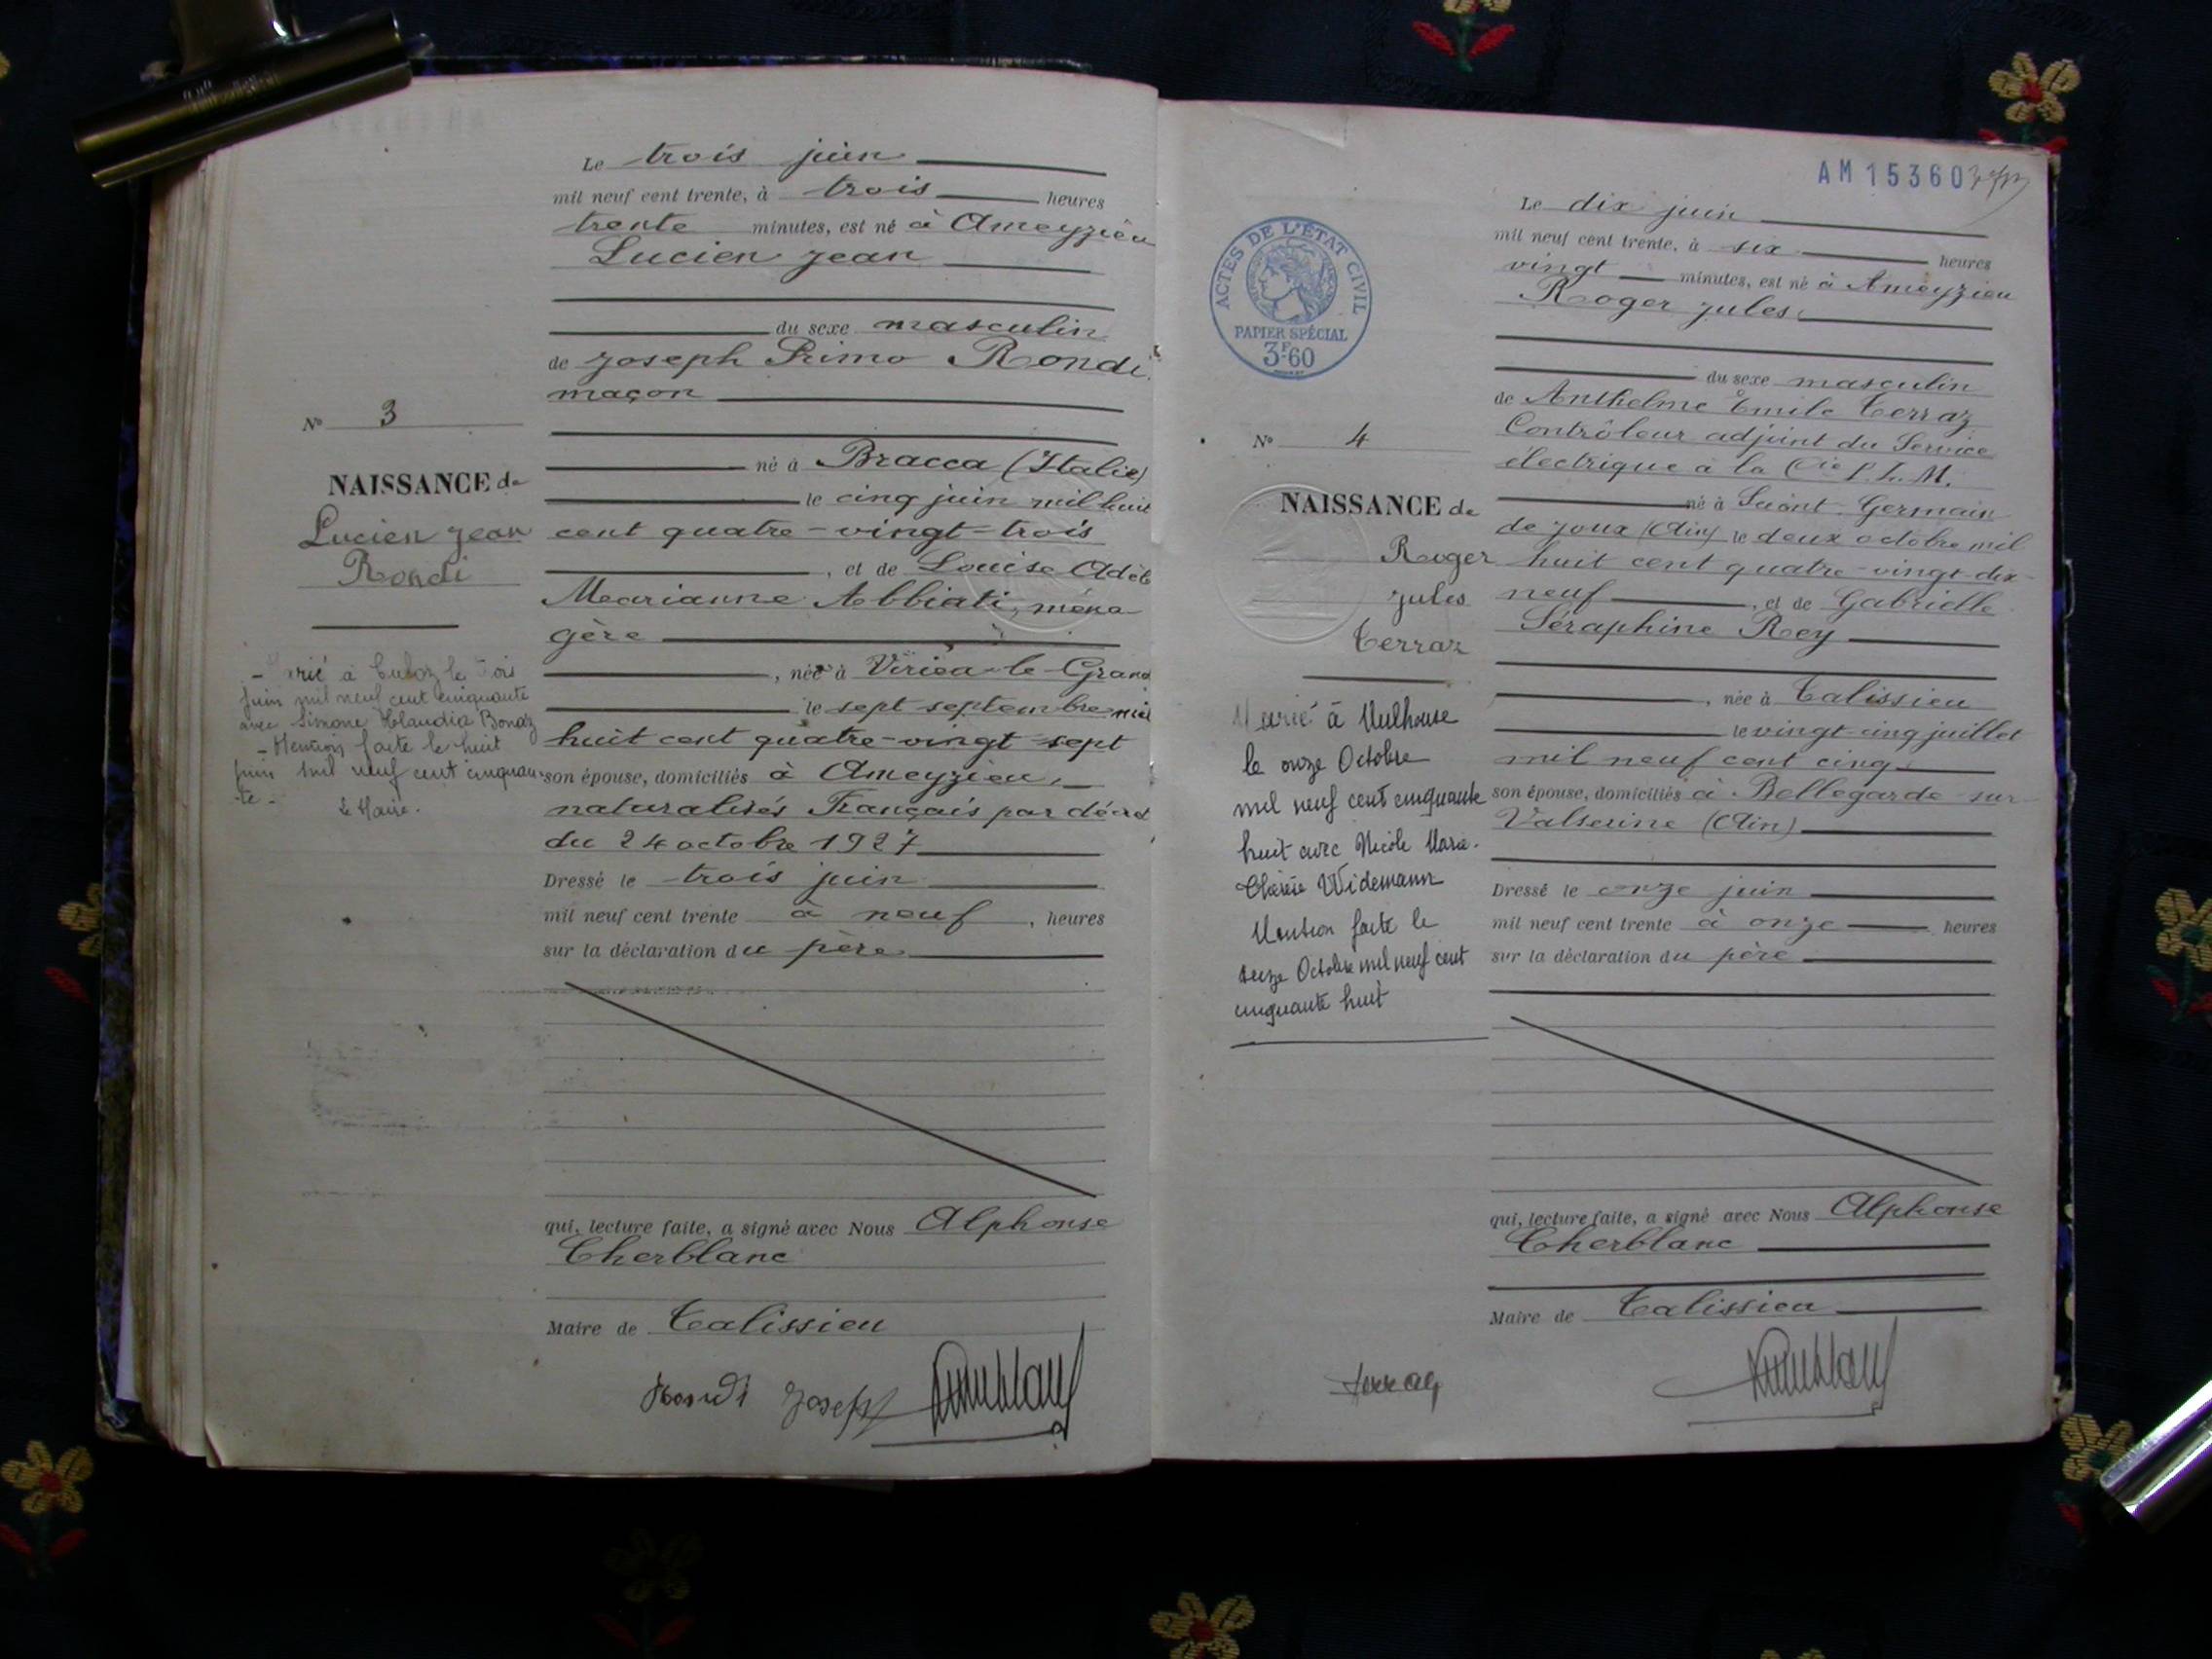 Le trois juin
mil neuf cent trente, à trois heures
trente minutes, est né à Ameyzieu
Lucien Jean
du sexe masculin
de Joseph Primo Rondi
maçon
né à Bracca (Italie)
le cinq juin mil huit
cent quatre-vingt-trois
, et de Louise Adèle
Marianne Abbiati, ména-
gère
, née à Virieu-le-Grand
le sept septembre mil
huit cent quatre-vingt sept
son épouse, domiciliés à Ameyzieu,
naturalisés Français par décret
du 24 octobre 1927
Dressé le trois juin
mil neuf cent trente à neuf, heures
sur la déclaration du père
qui, lecture faite, a signé avec Nous Alphonse
Cherblanc
Maire de Talissieu
Rondi Joseph
N° 3
NAISSANCE de
Lucien Jean
Rondi
- Marié à Culoz le trois
juin mil neuf cent cinquante
avec Simone Claudia Bonaz
- Mention faite le huit
juin mil neuf cent cinquan-
te -
Le Maire.
AM 15360
ACTES DE L'ÉTAT CIVIL
PAPIER SPÉCIAL
3F.60
Le dix juin
mil neuf cent trente, à six heures
vingt minutes, est né à Ameyzieu
Roger Jules
du sexe masculin
de Anthelme Emile Terraz
Contrôleur adjoint du Service
électrique à la Cie P.L.M.
né à Saint-Germain
de Joux (Ain) le deux octobre mil
huit cent quatre-vingt-dix-
neuf, et de Gabrielle
Séraphine Rey
, née à Talissieu
le vingt-cinq juillet
mil neuf cent cinq
son épouse, domiciliés à Bellegarde-sur-
Valserine (Ain)
Dressé le onze juin
mil neuf cent trente à onze heures
sur la déclaration du père
qui, lecture faite, a signé avec Nous Alphonse
Cherblanc
Maire de Talissieu
Terraz
N° 4
NAISSANCE de
Roger
Jules
Terraz
Marié à Mulhouse
le onze Octobre
mil neuf cent cinquante
huit avec Nicole Marie-
Thérèse Widemann
Mention faite le
Octobre mil neuf cent
cinquante huit